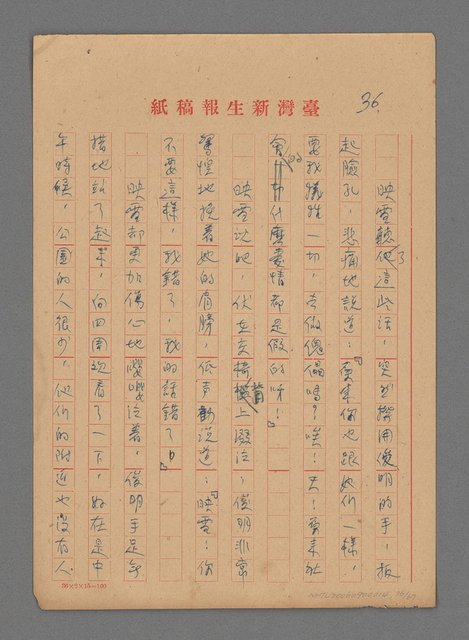 紙稿報生新灣臺
36
映雪聽他這些話，突然摔開俊明的手，扳
起臉孔，悲痛地說道：「原來你也跟她們一樣，
要我犧牲一切，去做傀儡嗎？唉！天！原來社
會什麼愛情都是假的呀！」
映雪說吧，伏在長椅上啜泣，俊明非常
驚惶地挽着她的肩膀，低声勸說道：「映雪！你
不要這樣，我錯了，我的話錯了。」
映雪却更加傷心地嚶嚶泣着，俊明手足無
措地站了起來，向四圍望看了一下，好在是中
午時候，公園的人很少，他們的附近也沒有人